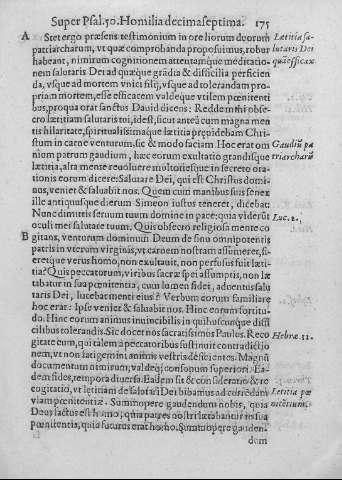 Super Psal. 50. Homilia decimaseptima. 175
A Stet ergo præsens testimonium in ore horum duorum
patriarcharum, vt quæ comprobanda proposuimus, robur
habeant, nimirum cognitionem attentamque meditatio-
nem salutaris Dei ad quæque grādia & difficilia perficien
da, vsque ad mortem vnici filij, vsque ad tolerandam pro-
priam mortem, esse efficacem valdeque vtilem pœnitenti
bus, pro qua orat sanctus Dauid dicens: Redde mihi obse-
cro lætitiam salutaris tui, id est, sicut anteà cum magna men
tis hilaritate, spiritualissimaque lætitia
stum in carne venturum, sic & modo faciam Hoc erat om
nium patrum gaudium, hæc eorum exultatio grandisque
lætitia, alta mente reoluere multoties que in secreto ora-
tionis eorum dicere: Saluare Dei, qui est Christus domi-
nus, veniet & saluabit nos. Quem cum manibus suis senex
ille antiquusque dierum Symeon iustus teneret, dicebat:
Nunc dimittis seruum tuum domine in pace: quia viderūt
oculi mei salutare tuum. Quis obsecro religiosa mente co
B gitans, venturum dominum Deum de sinu omnipotentis
patris in vterum virginis, vt carnem nostram assumeret, fi-
eretque verus homo, non exultauit, non perfusus fuit læti-
tia? Quis peccatorum, viribus sacræ spei assumptis, non læ
tabatur in sua pœnitentia, cum lumen fidei, aduentus salu
taris Dei, lucebat menti eius? Verbum eorum familiare
hoc erat: Ipse veniet & saluabit nos. Hinc eorum fortitu-
do. Hinc eorum animus inuincibilis in quibuscunque diffi
cilibus tolerandis. Sic docet nos sacratissimus Paulus. Reco
gitate eum, qui talem à peccatoribus sustinuit contradictio
nem, vt non fatigemini animis vestris deficientes. Magnū
documentum nimirum, valdeque consonum superiori. Ea-
dem fides, tempora diuersa. Eadem sit & consideratio & re
cogitatio, vt lætitiam de salutari Dei bibamus ad
viam pœnitentiæ. Summopere gaudendum nobis, quia
Deus factus est homo; quia patres nostri lætabantur in sua
pœnitentia, quia futurus erat homo. Summopere gauden-
dum
Lætitia sa-
lutaris Dei
quā efficax
Gaudiū pa
triarcharū
Luc. 2.
Hebræ. 12.
Lætitia pœ
nitētium.